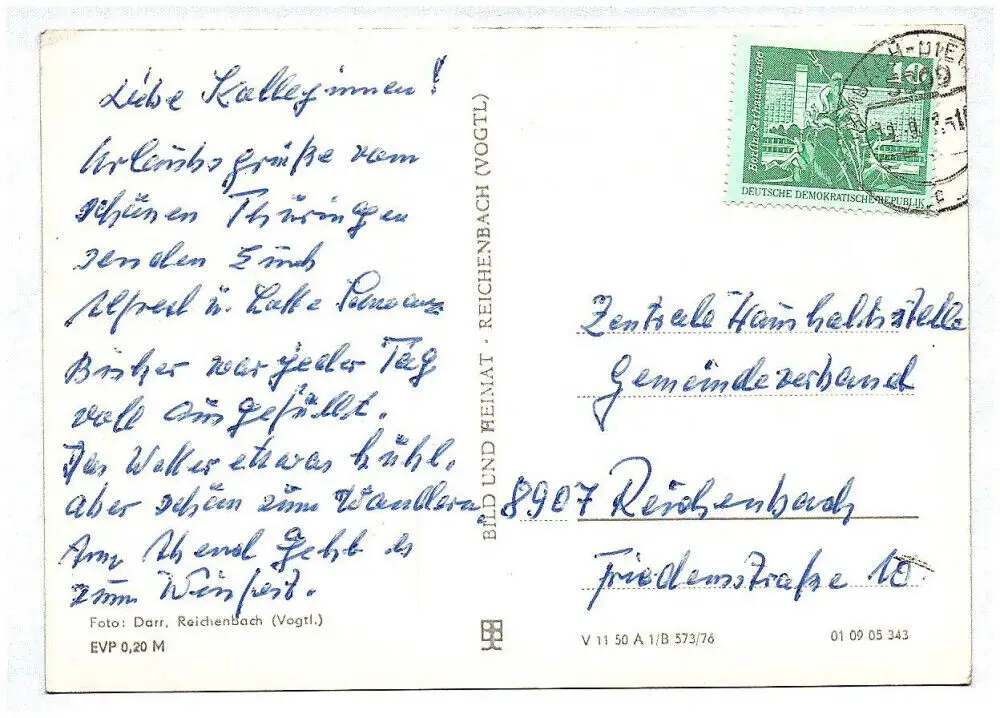 Liebe Kolleginnen!
Urlaubsgrüße vom
schönen Thüringen
senden Euch
Alfred u. Lotte
Bisher war jeder Tag
voll ausgefüllt.
Das Wetter etwas kühl,
aber schön zum Wandern,
Am Abend geht es
zum Weinfest.
Foto: Darr, Reichenbach (Vogtl.)
EVP 0,20 M
BILD UND HEIMAT · REICHENBACH (VOGTL)
10
Berlin-Rathausstraße
DEUTSCHE DEMOKRATISCHE REPUBLIK
Zentrale Haushaltsstelle
Gemeindeverband
8907 Reichenbach
Friedensstraße 10
V 11 50 A 1/B 573/76
01 09 05 343